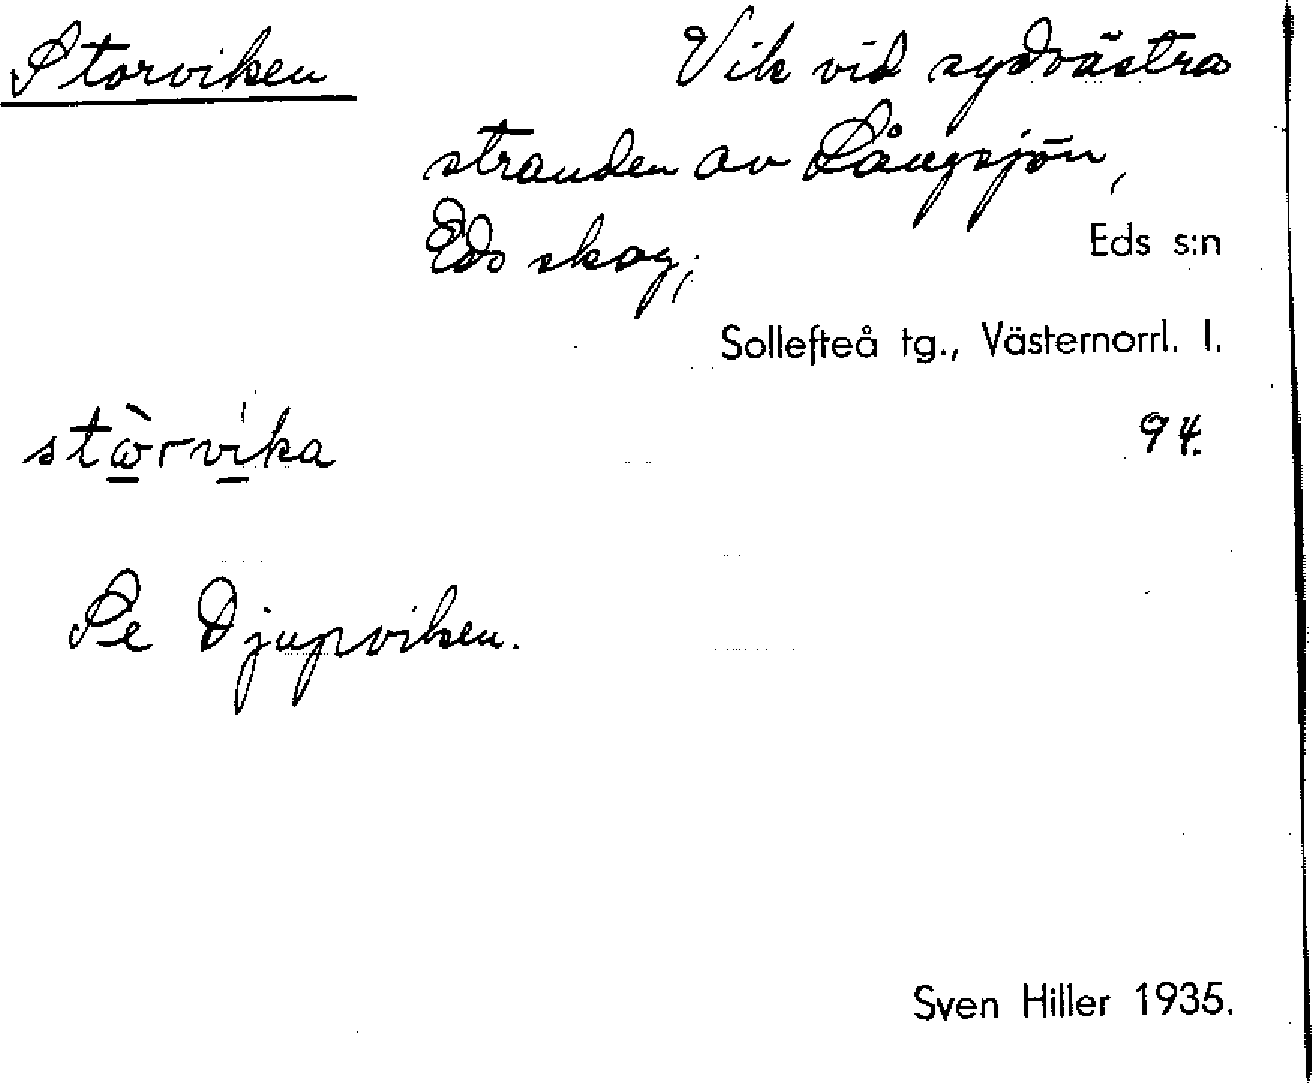 Storviken
Vik vid sydvästra
stranden av Långsjön,
Eds skog;
Eds s:n
Sollefteå tg., Västernorrl. l.
94.
stὼ̲rví̲ka
Se Djupviken.
Sven Hiller 1935.